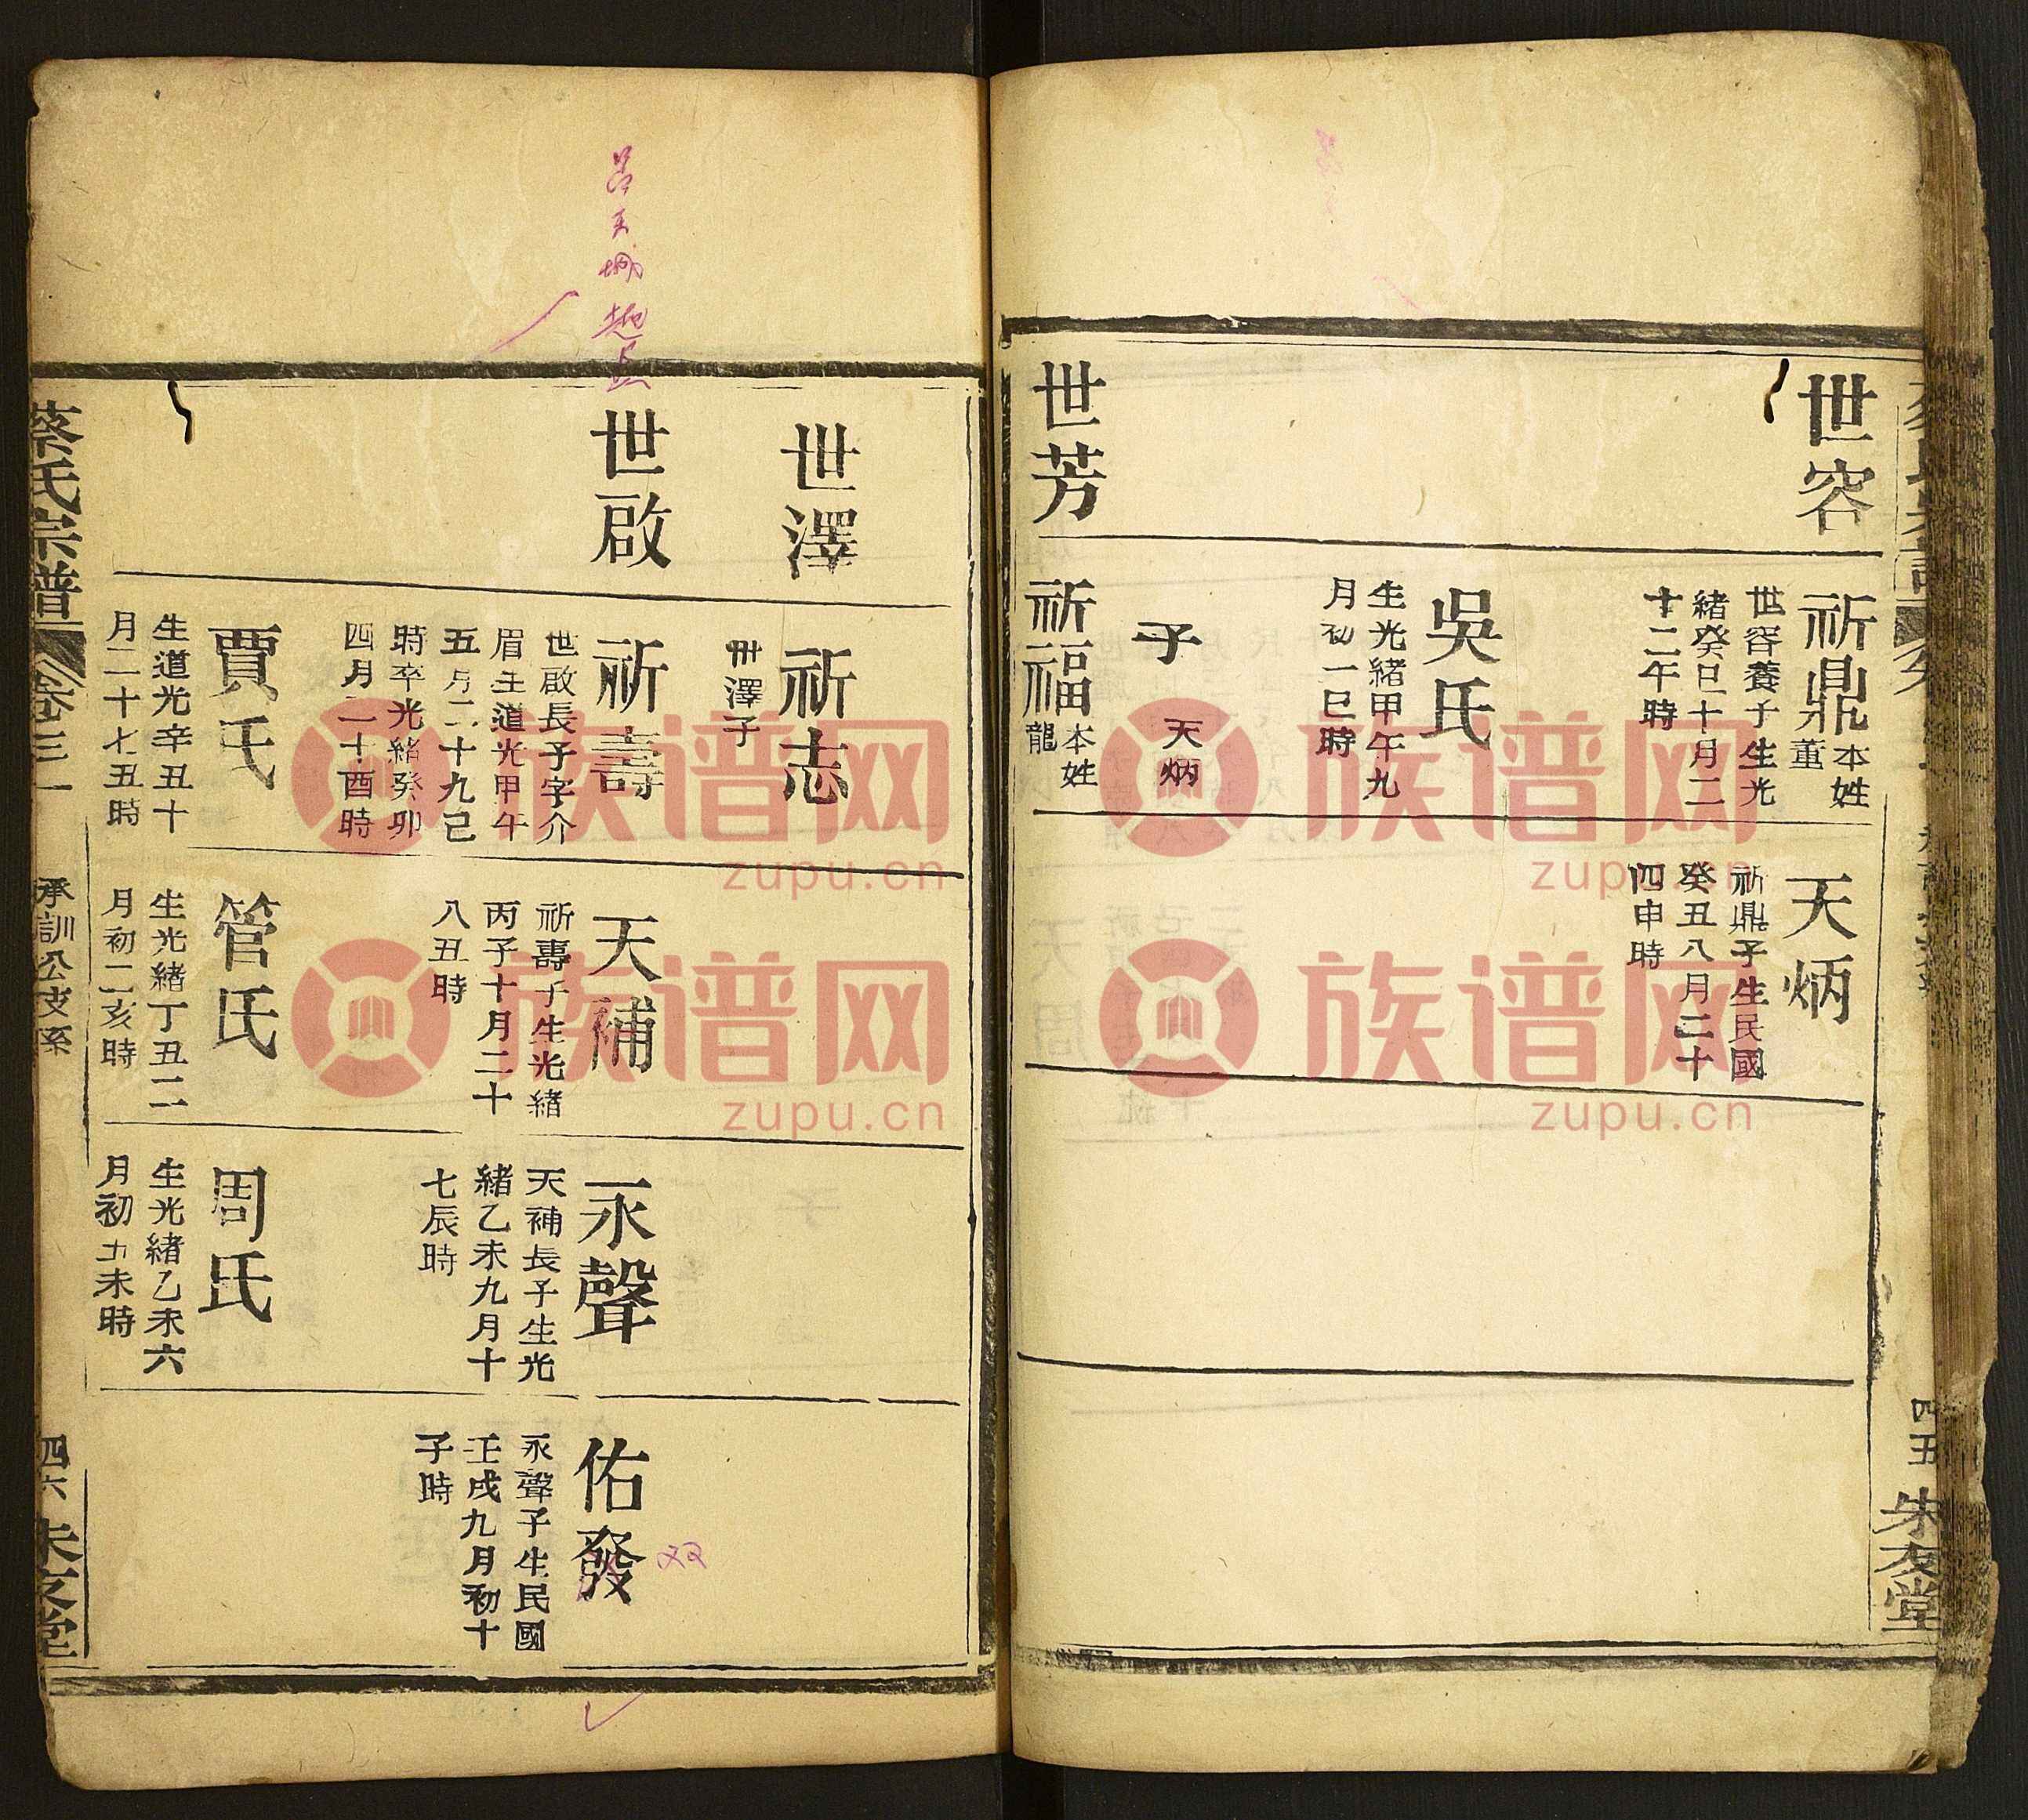 世容
祈鼎
本姓
董
世容養子生光
緒癸巳十月二
十二午時
吳氏
生光緒甲午九
月初一巳時
子
天炳
天炳
祈鼎子生民國
癸丑八月二十
四申時
世芳
祈福
本姓
龍
四五
朱友堂
世澤
祈志
世澤子
世啟
祈壽
世啟長子字介
眉生道光甲午
五月二十九己
時卒光緒癸卯
四月二十酉時
賈氏
生道光辛丑十
月二十七丑時
天補
祈壽子生光緒
丙子十月二十
八丑時
管氏
生光緒丁丑二
月初二亥時
永聲
天補長子生光
緒乙未九月十
七辰時
周氏
生光緒乙未六
月初五未時
佑發
永聲子生民國
壬戌九月初十
子時
双
蔡氏宗譜
卷三一
承訓公支系
四六
朱友堂
族谱网
zupu.cn
族谱网
zupu.cn
族谱网
zupu.cn
族谱网
zupu.cn